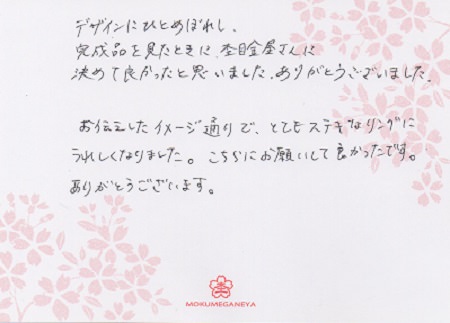 デザインにひとめぼれし、
完成品を見たときに、杢目金屋さんに
決めて良かったと思いました。ありがとうございました。
お伝えしたイメージ通りで、とてもステキなリングに
うれしくなりました。こちらにお願いして良かったです。
ありがとうございます。
MOKUMEGANEYA